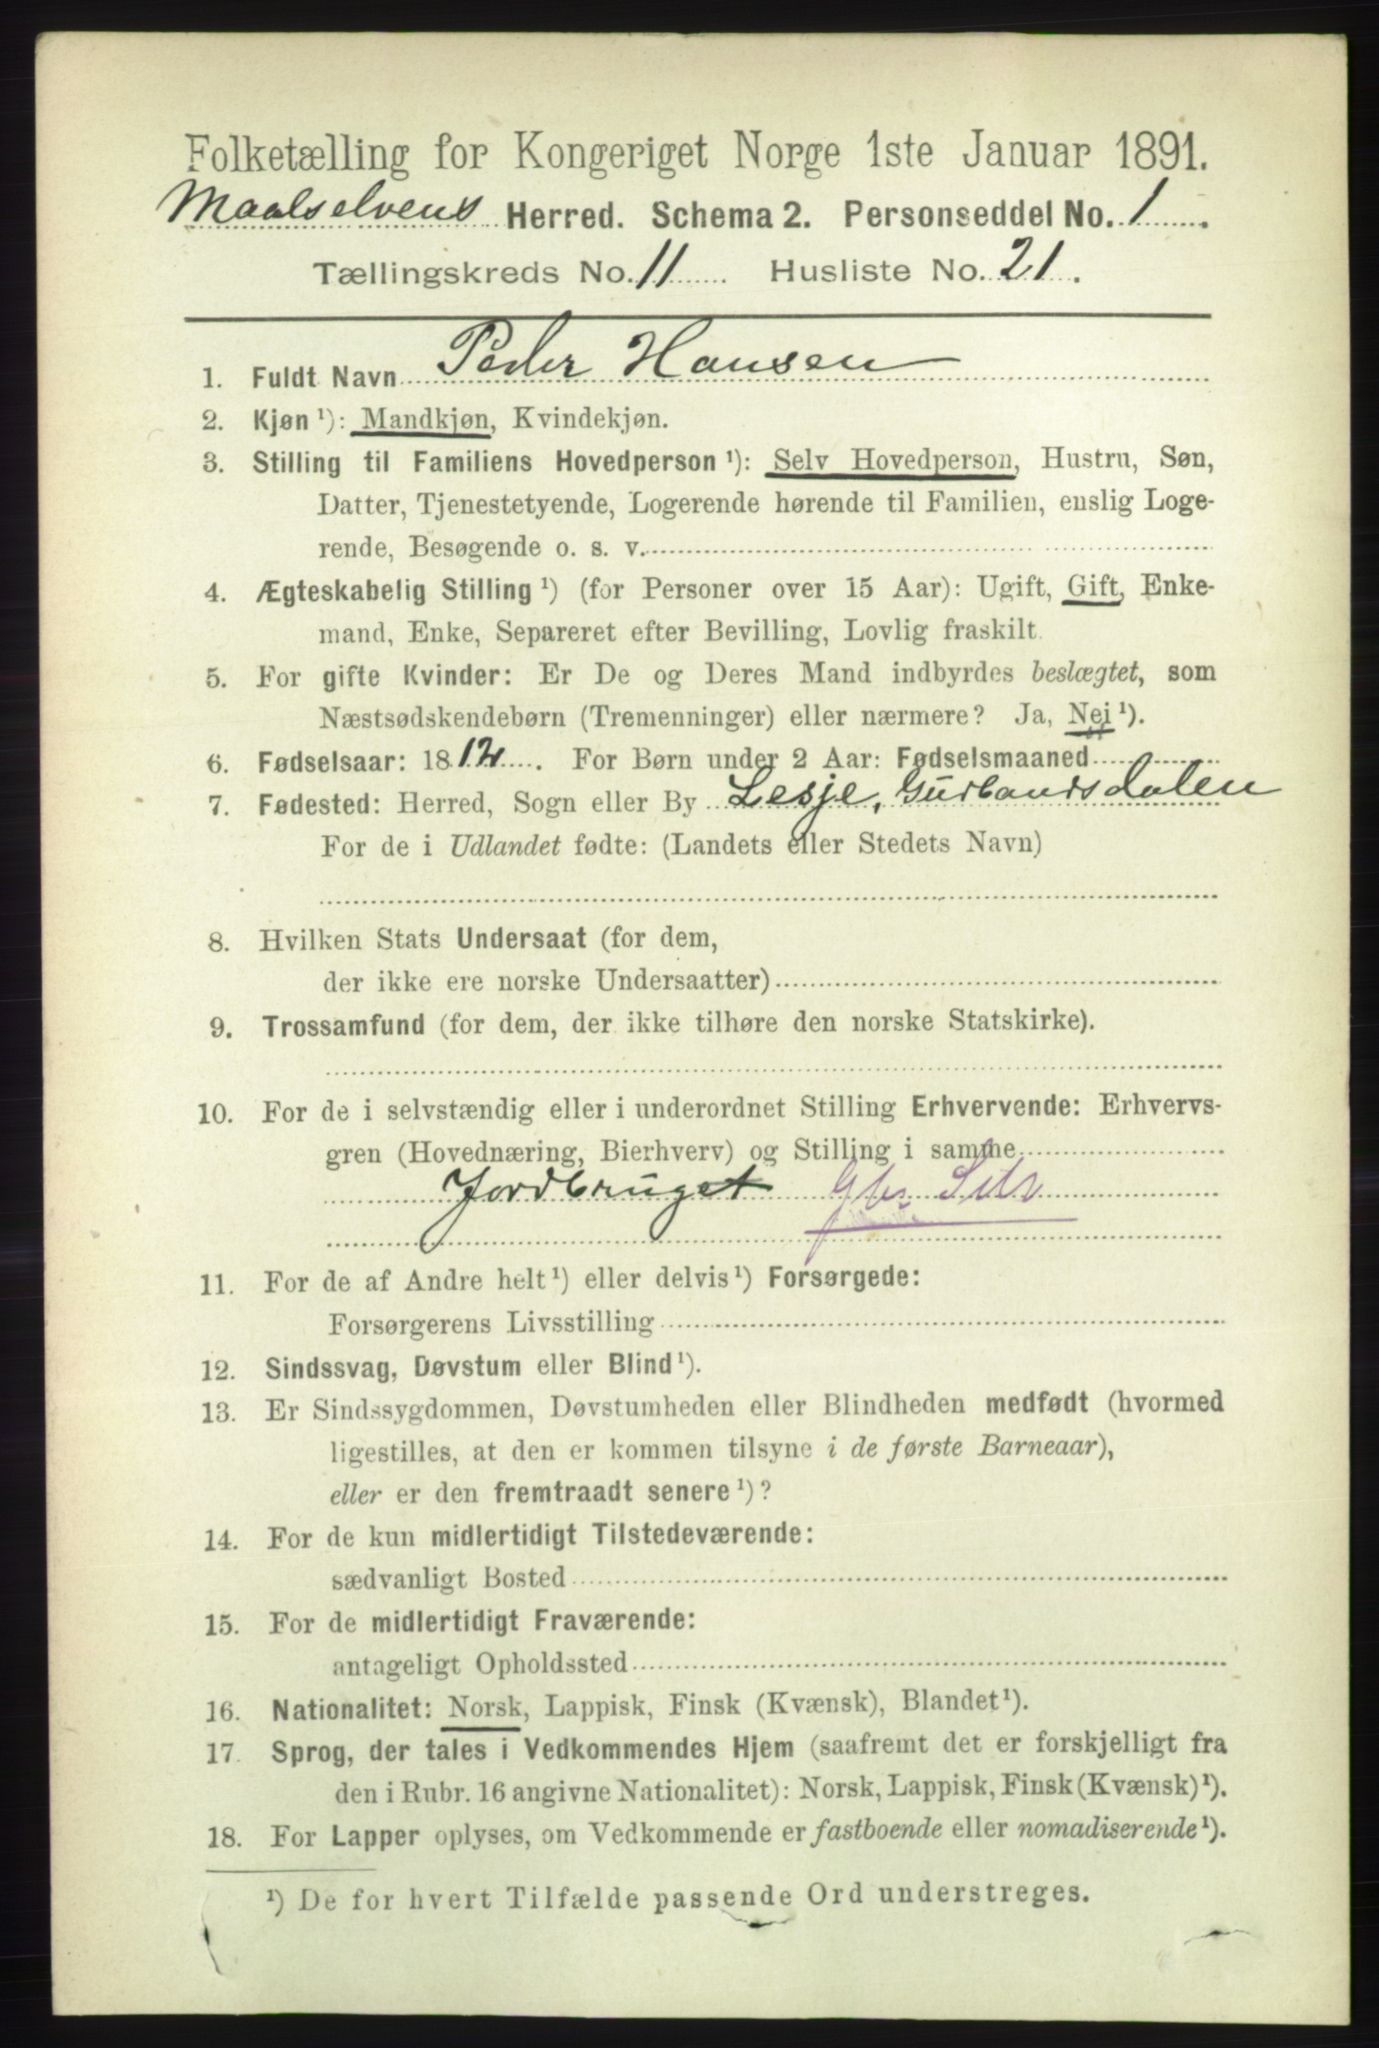 Folketælling for Kongeriget Norge 1ste Januar 1891.
Maalselvens Herred. Schema 2. Personseddel No. 1.
Tællingskreds No. 11 Husliste No. 21.
1. Fuldt Navn Peder Hansen
2. Kjøn ¹): Mandkjøn, Kvindekjøn.
3. Stilling til Familiens Hovedperson ¹): Selv Hovedperson, Hustru, Søn,
Datter, Tjenestetyende, Logerende hørende til Familien, enslig Loge-
rende, Besøgende o. s. v.
4. Ægteskabelig Stilling ¹) (for Personer over 15 Aar): Ugift, Gift, Enke-
mand, Enke, Separeret efter Bevilling, Lovlig fraskilt
5. For gifte Kvinder: Er De og Deres Mand indbyrdes beslægtet, som
Næstsødskendebørn (Tremenninger) eller nærmere? Ja, Nei ¹).
6. Fødselsaar: 1812. For Børn under 2 Aar: Fødselsmaaned
7. Fødested: Herred, Sogn eller By Lesje, Gudbandsdalen
For de i Udlandet fødte: (Landets eller Stedets Navn)
8. Hvilken Stats Undersaat (for dem,
der ikke ere norske Undersaatter)
9. Trossamfund (for dem, der ikke tilhøre den norske Statskirke).
10. For de i selvstændig eller i underordnet Stilling Erhvervende: Erhvervs-
gren (Hovednæring, Bierhverv) og Stilling i samme
Jordbruget Gbr
11. For de af Andre helt ¹) eller delvis ¹) Forsørgede:
Forsørgerens Livsstilling
12. Sindssvag, Døvstum eller Blind ¹).
13. Er Sindssygdommen, Døvstumheden eller Blindheden medfødt (hvormed
ligestilles, at den er kommen tilsyne i de første Barneaar),
eller er den fremtraadt senere ¹)?
14. For de kun midlertidigt Tilstedeværende:
sædvanligt Bosted
15. For de midlertidigt Fraværende:
antageligt Opholdssted
16. Nationalitet: Norsk, Lappisk, Finsk (Kvænsk), Blandet ¹).
17. Sprog, der tales i Vedkommendes Hjem (saafremt det er forskjelligt fra
den i Rubr. 16 angivne Nationalitet): Norsk, Lappisk, Finsk (Kvænsk) ¹).
18. For Lapper oplyses, om Vedkommende er fastboende eller nomadiserende ¹).
¹) De for hvert Tilfælde passende Ord understreges.